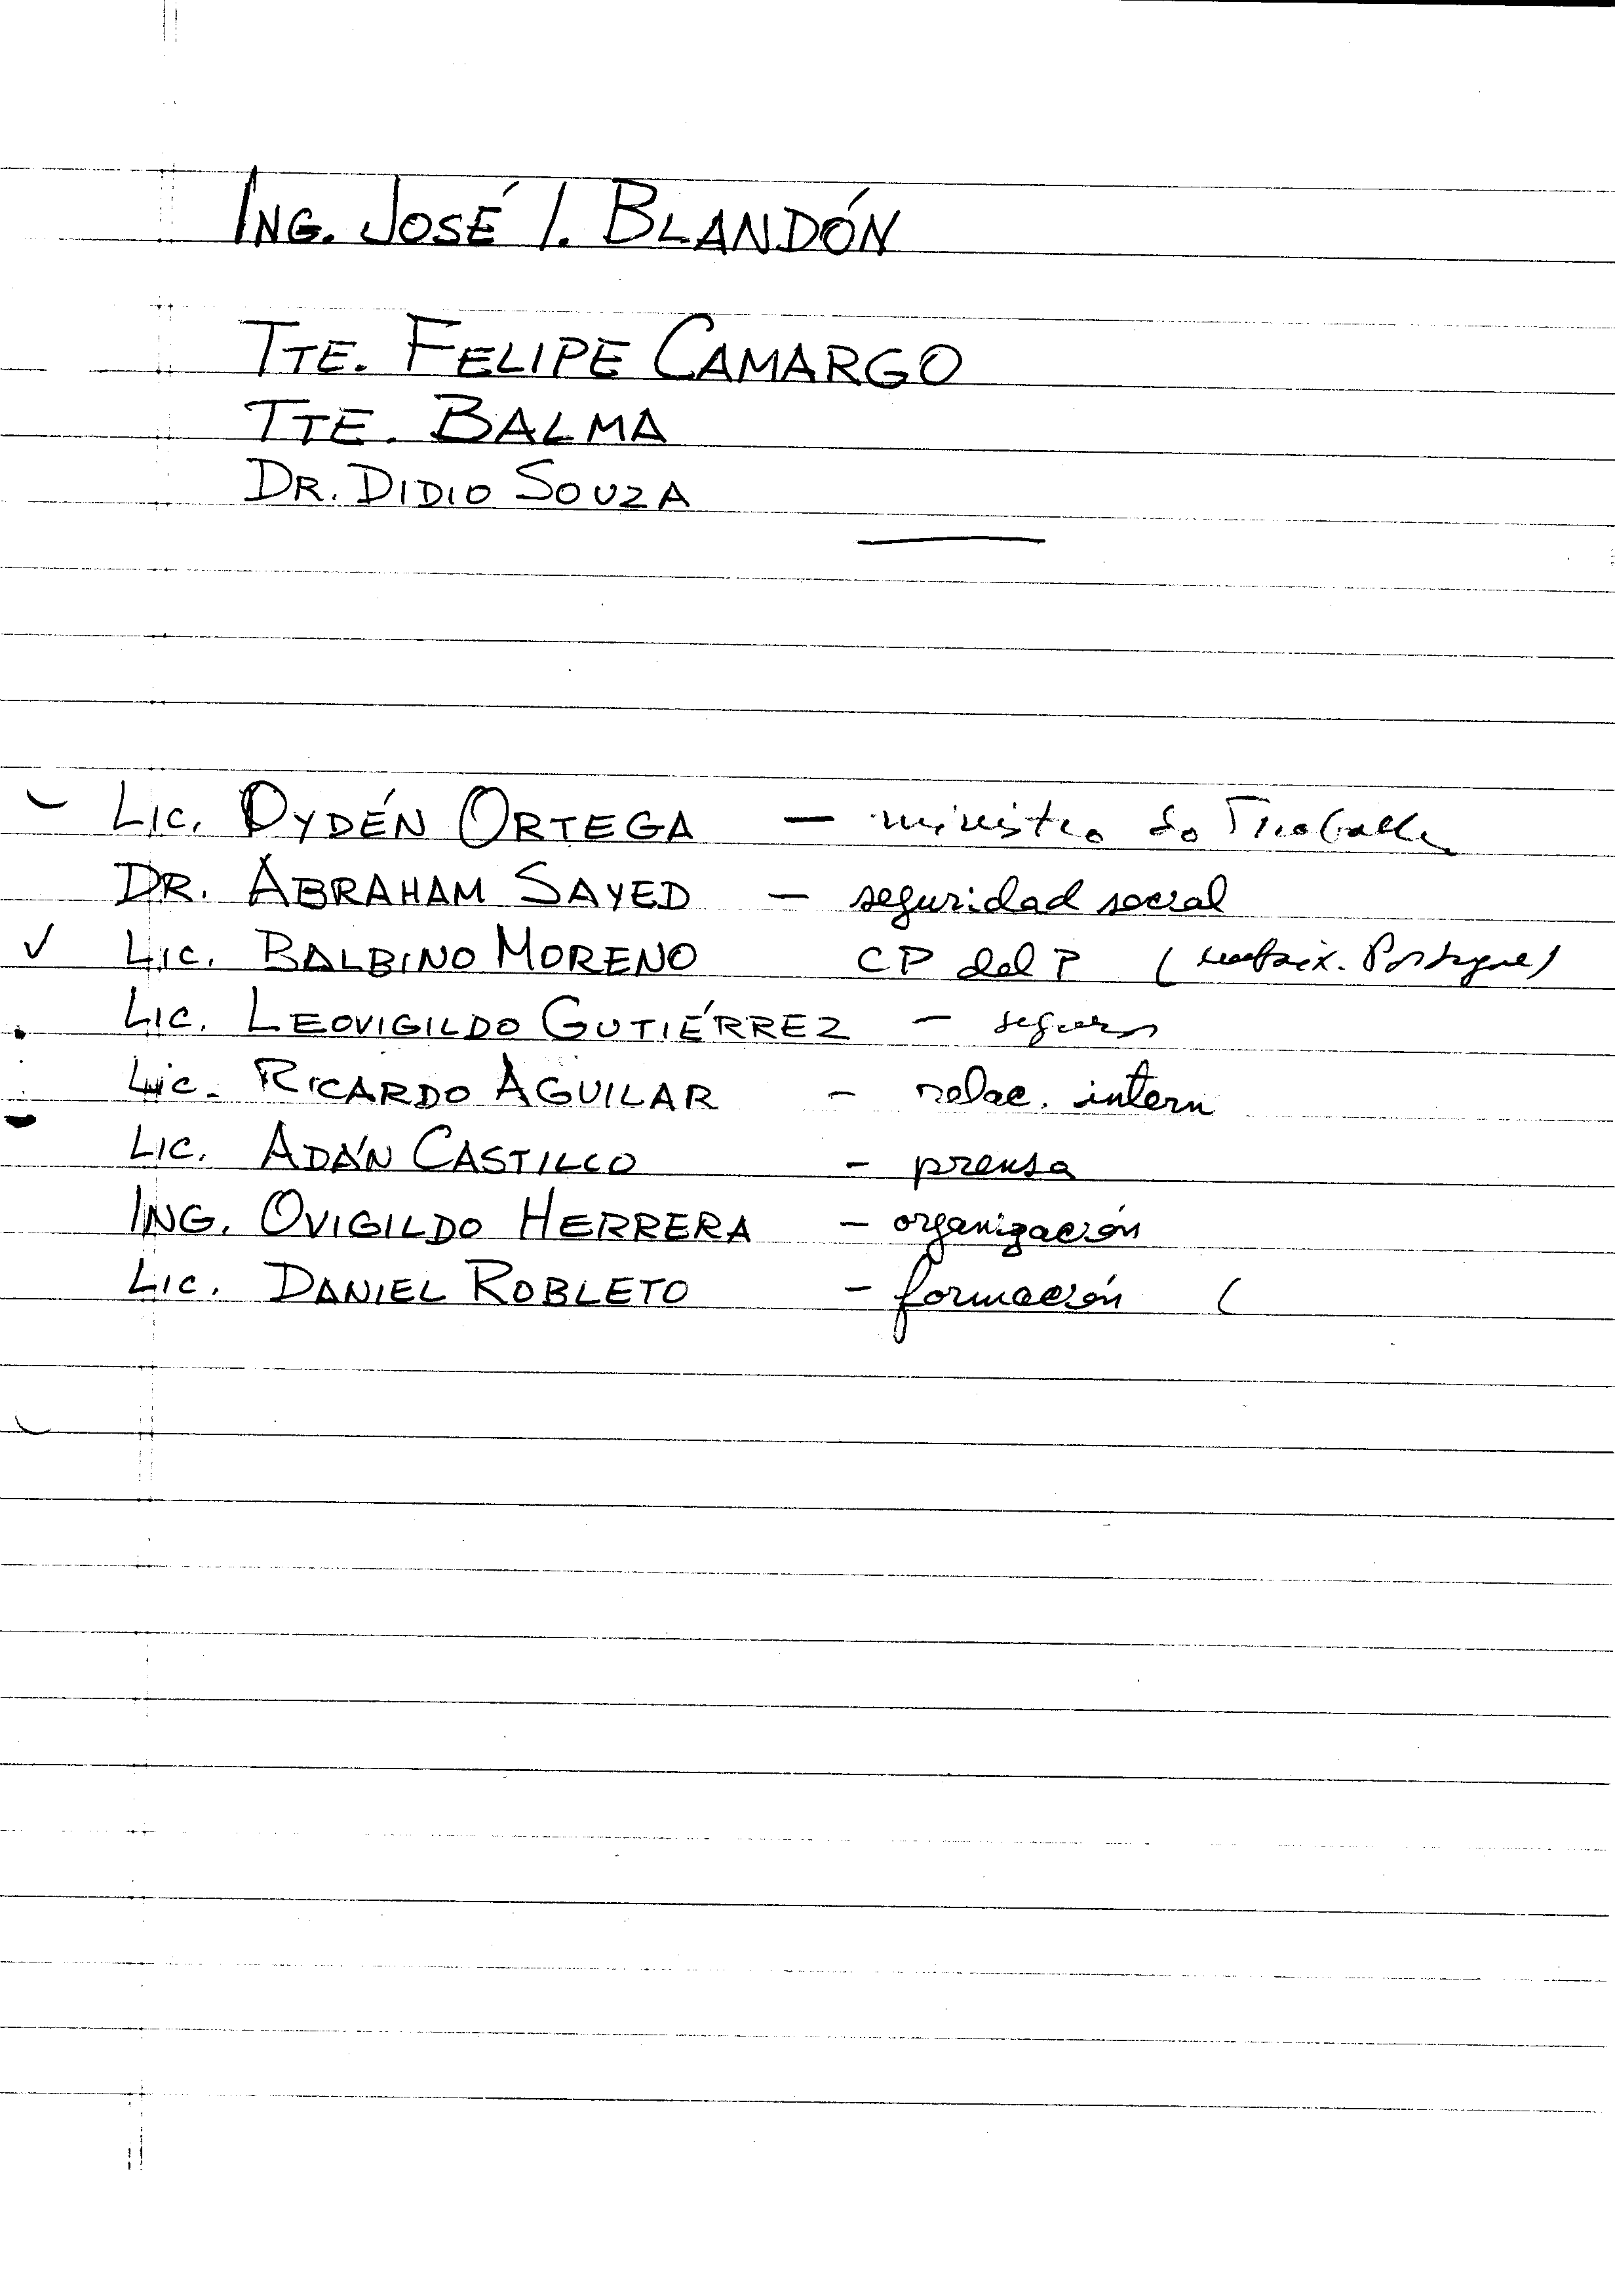 ING. JOSÉ I. BLANDÓN
TTE. FELIPE CAMARGO
TTE. BALMA
DR. DIDIO SOUZA
LIC. DYDÉN ORTEGA — ministro do Trabalho
DR. ABRAHAM SAYED — seguridad social
✓ LIC. BALBINO MORENO CP del P (
LIC. LEOVIGILDO GUTIÉRREZ — seguros
LIC. RICARDO AGUILAR — relac. intern
LIC. ADÁN CASTILLO — prensa
ING. OVIGILDO HERRERA — organización
LIC. DANIEL ROBLETO — formación (